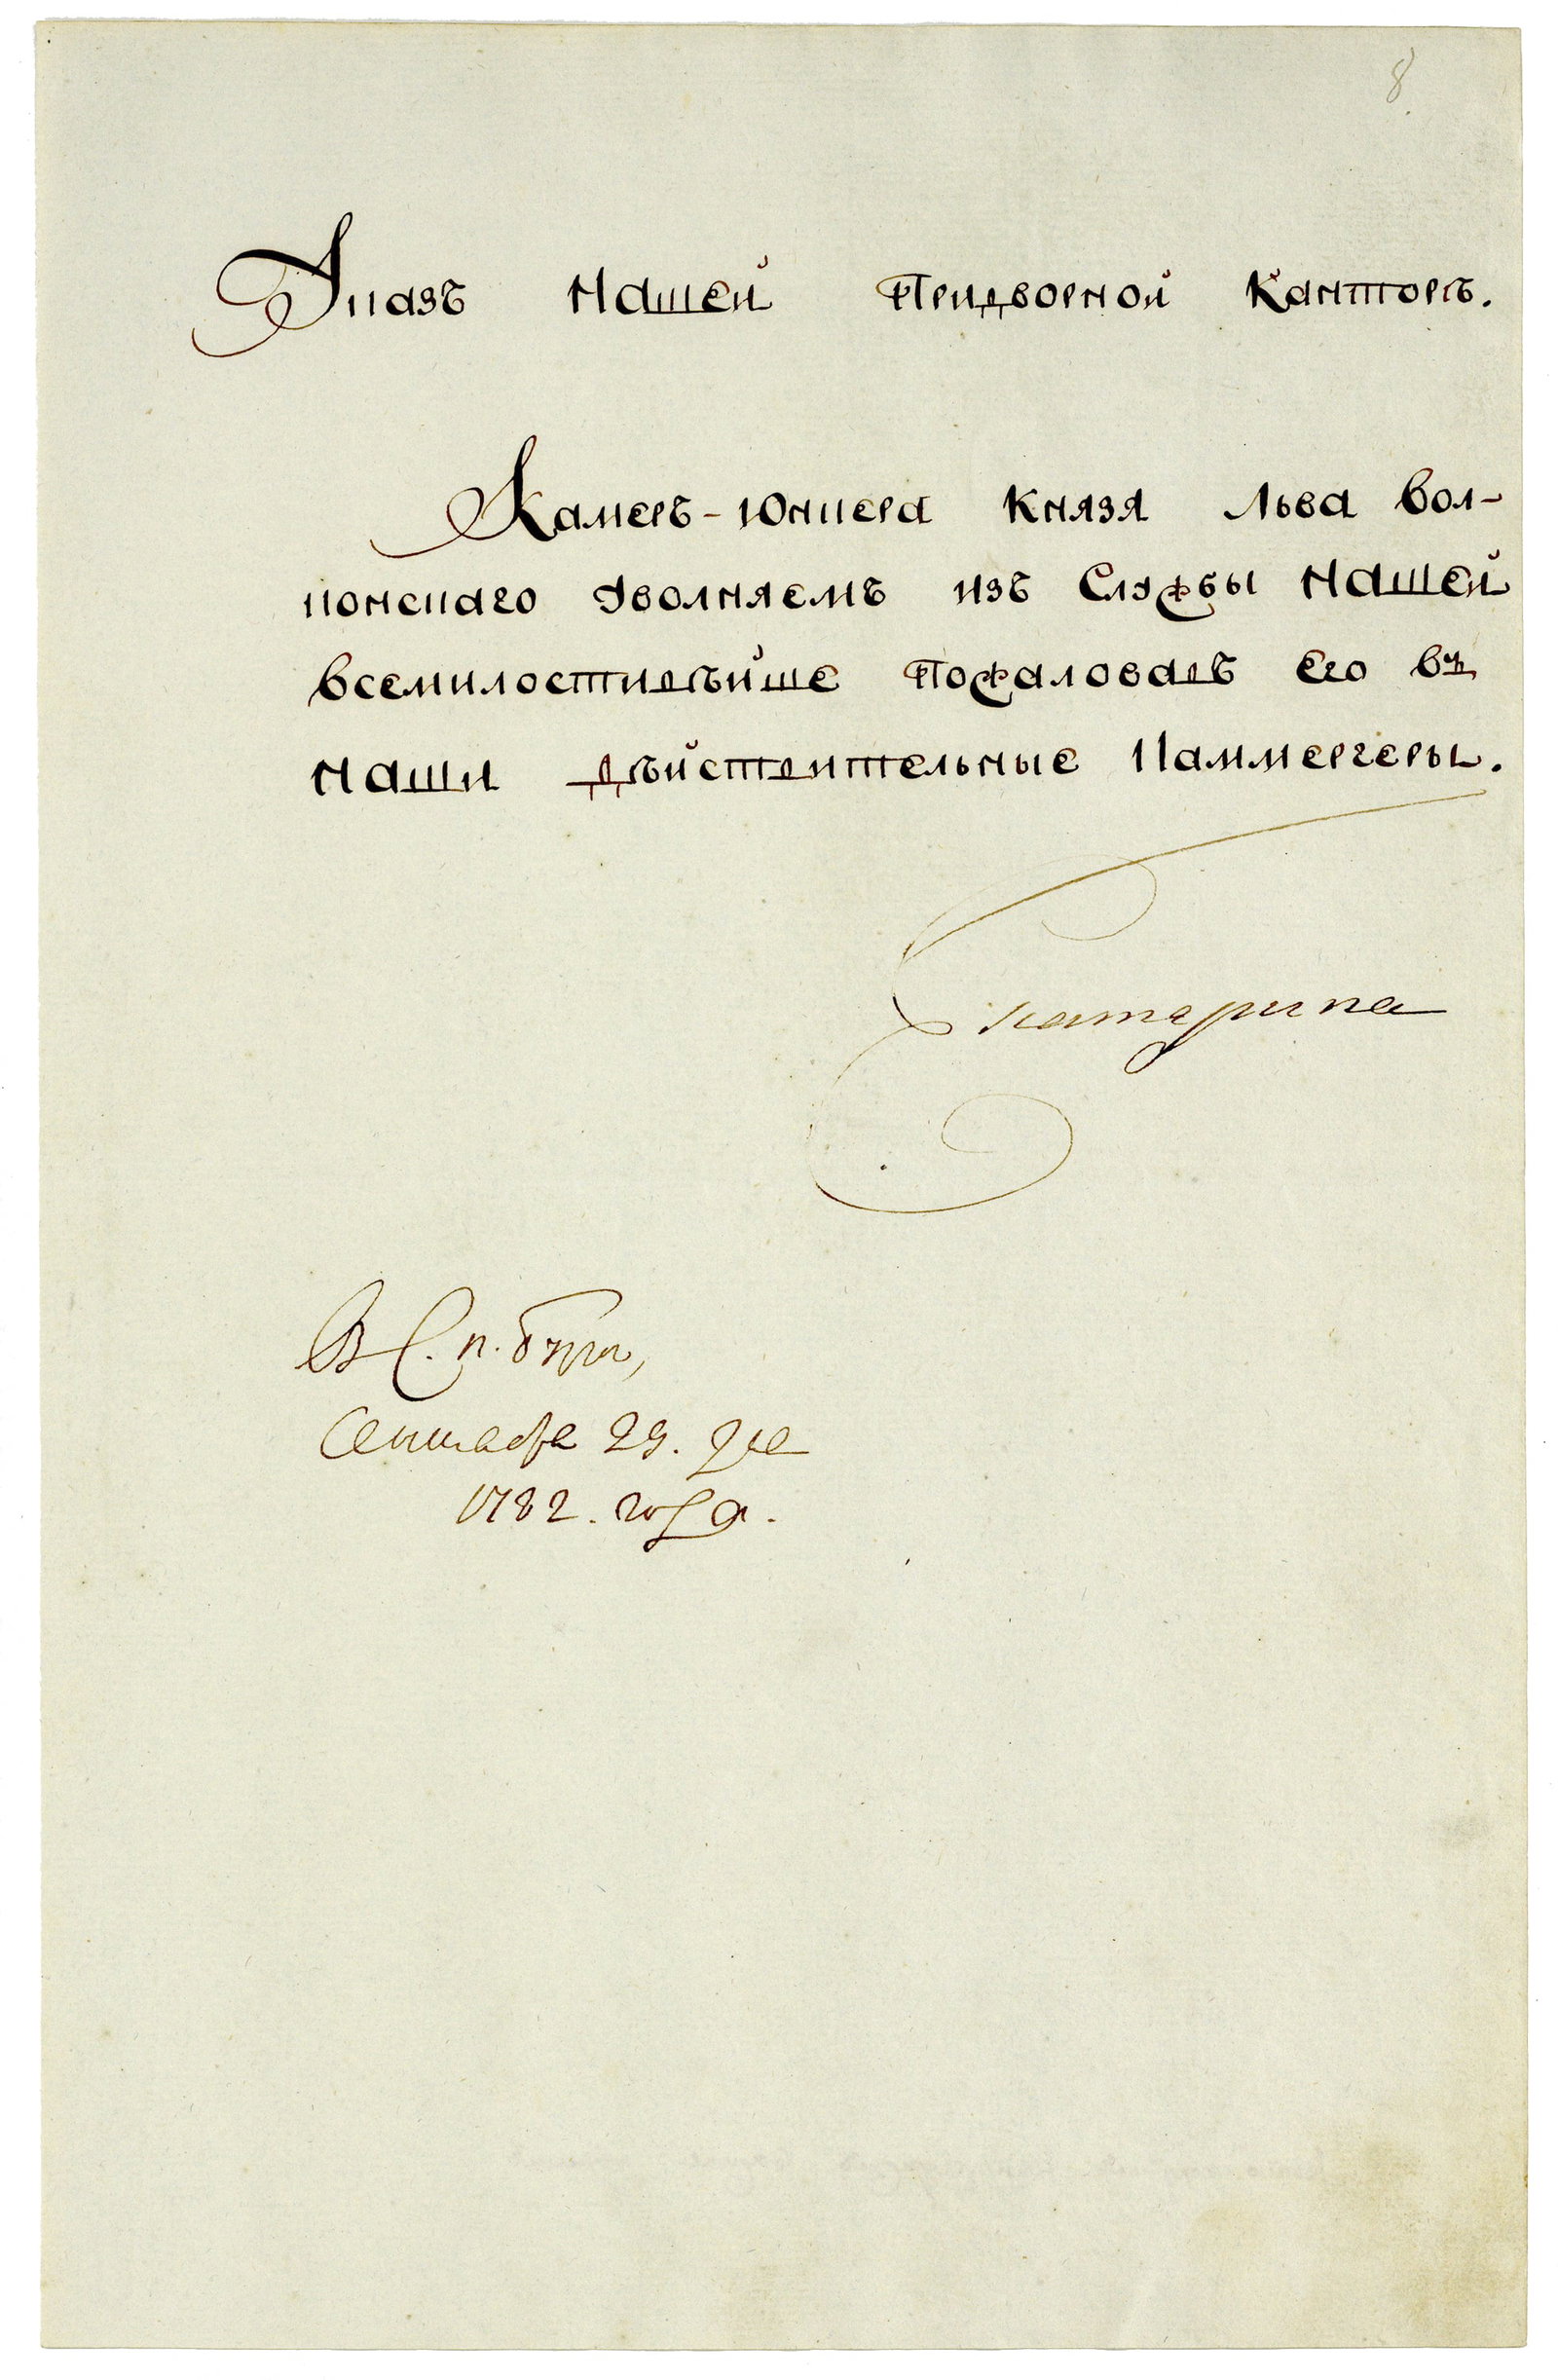 8
Указъ Нашей Придворной Канторѣ.
Камеръ-Юнкера Князя Льва Вол-
конскаго уволняемъ изъ Службы Нашей
Всемилостивѣйше Пожаловавъ Его въ
Наши Дѣйствительные Каммергеры.
Екатерина
В С. п. бурге,
Сентября 29. дня
1782. года.